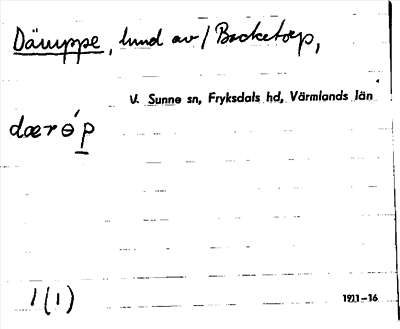 Däruppe, lund av / Backetorp,
V. Sunne sn, Fryksdals hd, Värmlands län
dær ɵ́ p
1(1)
1911–16